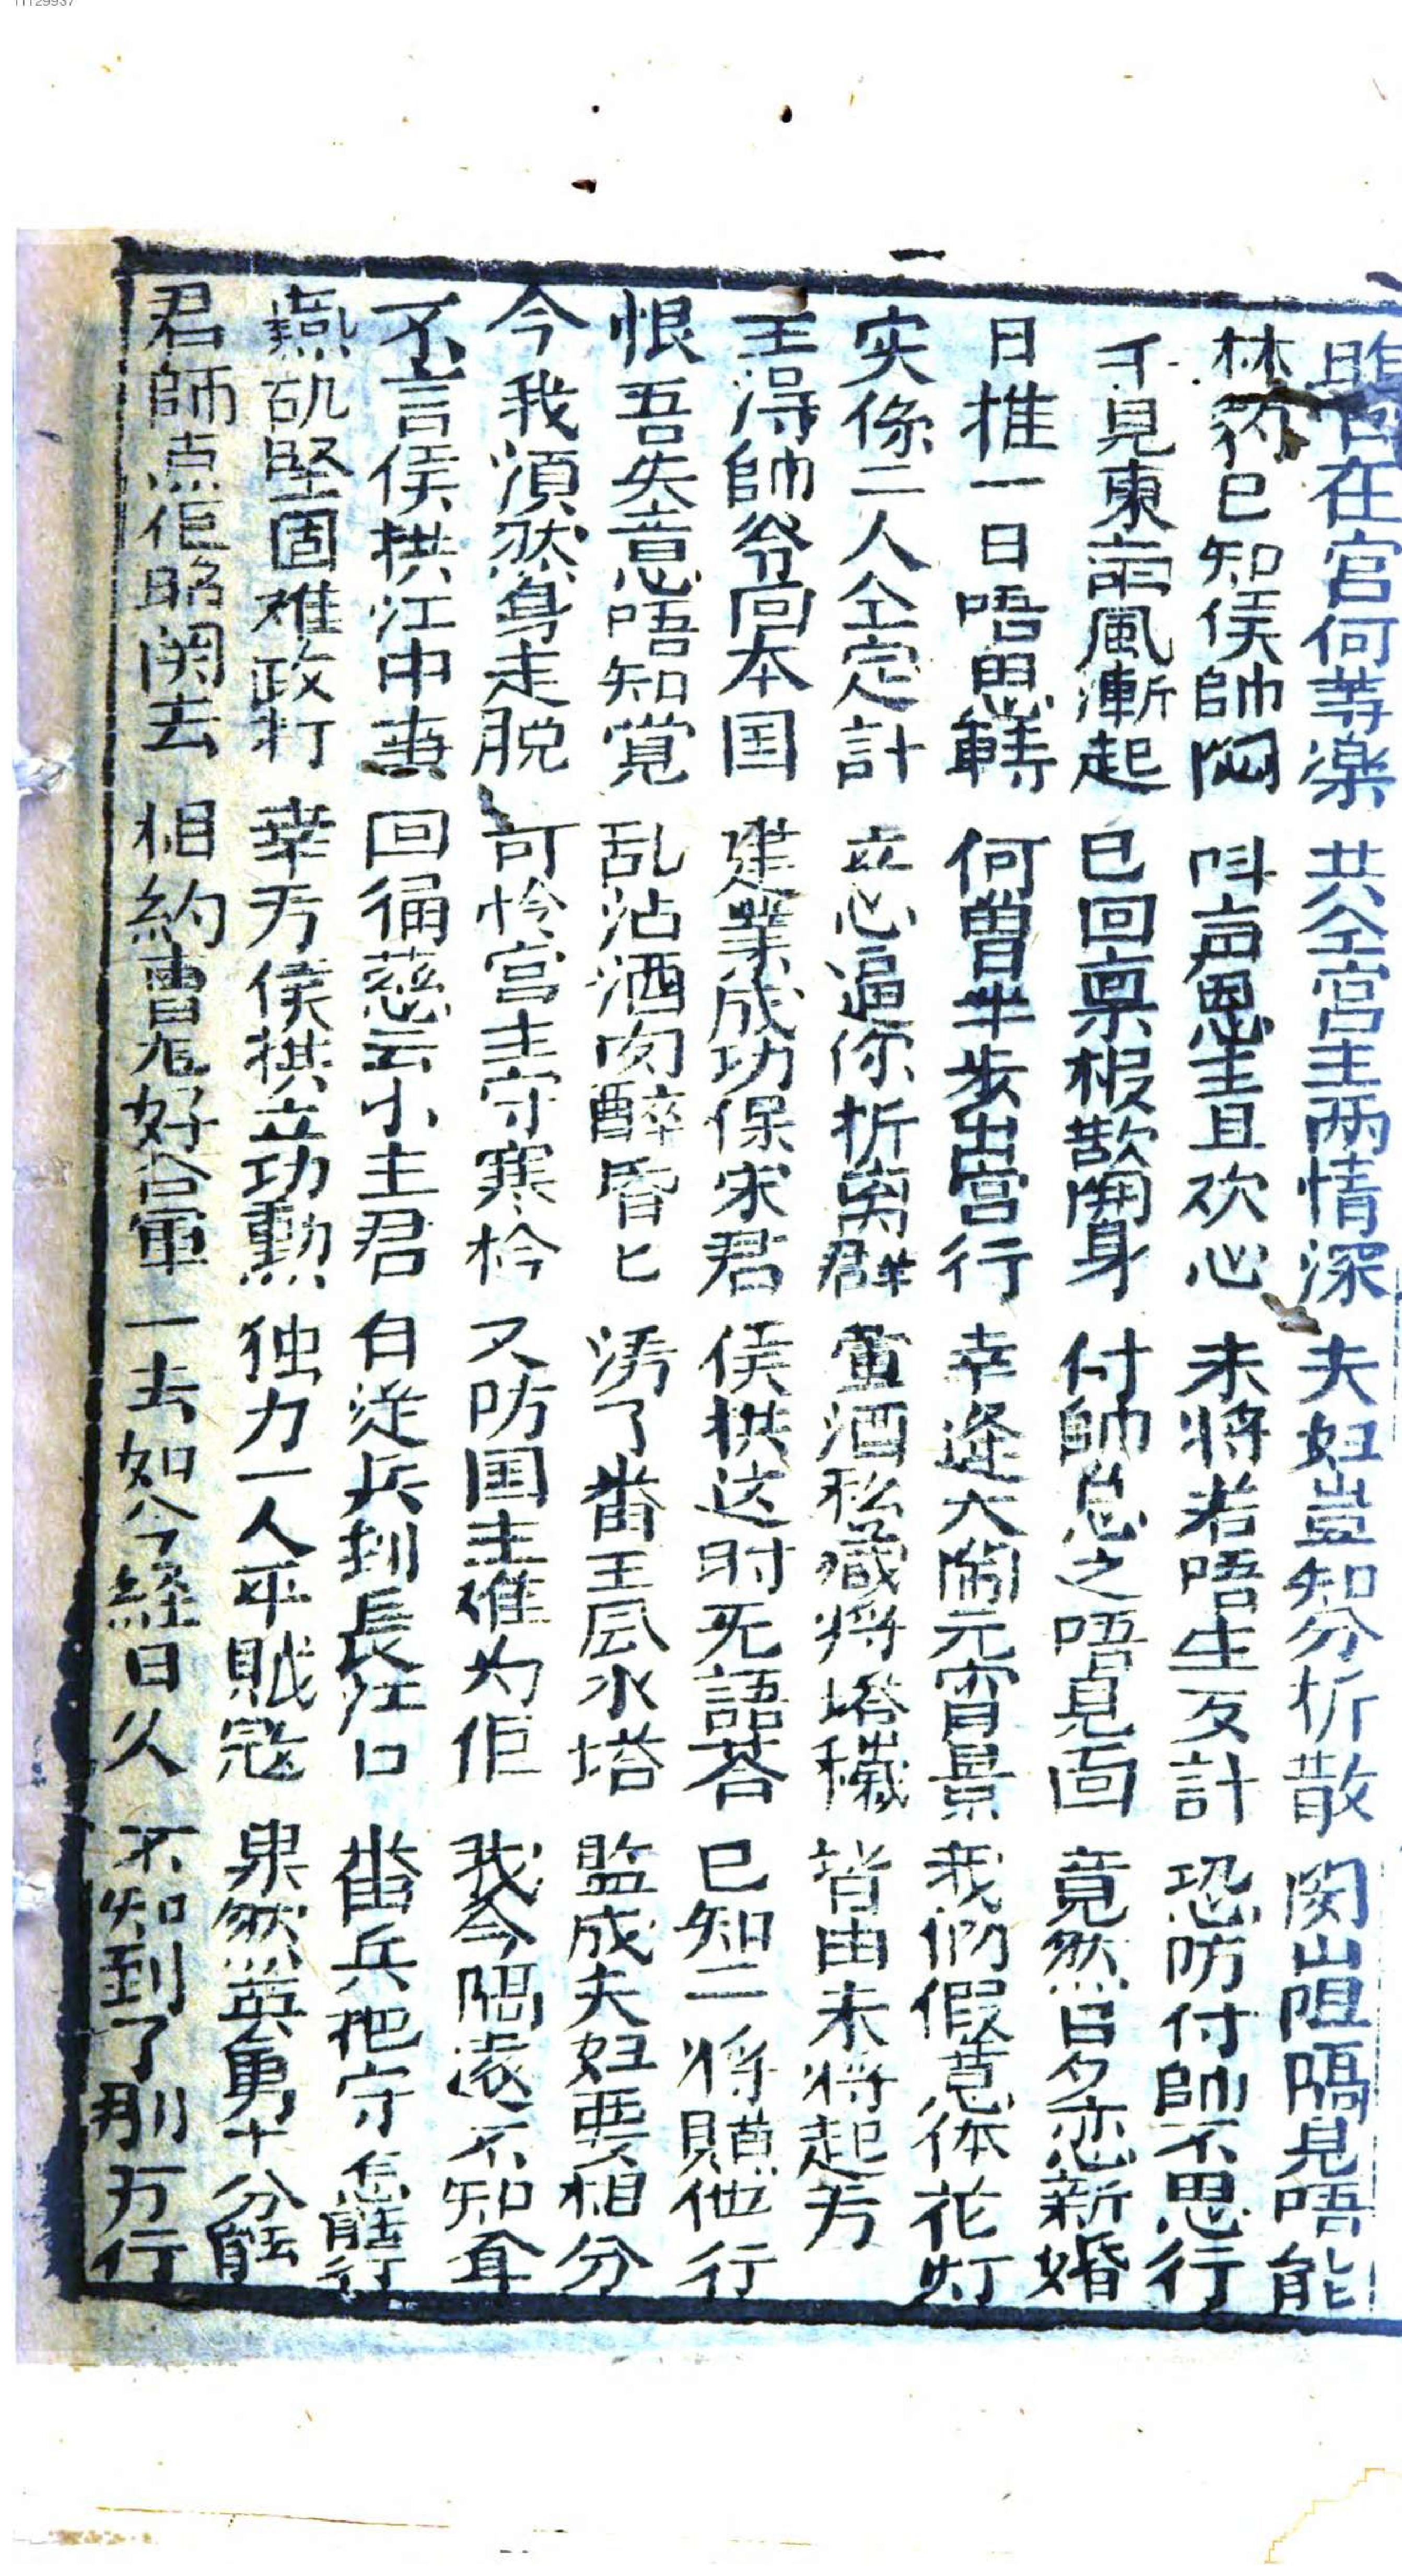 昨日在宫何等楽 共仝宮主兩情深 夫妇豈知分折散 関山阻隔見唔能
林 已知侯帥悶 呌声恩主且欢心 未将若唔生反計 恐防付帥不思行
千見東 風漸起 已回禀報 開身 付帥总之唔見面 竟然 恋新婚
日推一日唔思轉 何曽半步出宫行 幸逢大鬧元宵景 我們假意 花灯
实係二人仝定計 立心逼你折离群 童酒私藏将塔穢 皆由未将起 
王淂帥爷回本国 建業成功保宋君 侯拱这时无語荅 已知二将賍他行
恨吾失意唔知覚 乱沾酒肉醉昏匕 汚了番王风水塔 監成夫妇要相分
今我湏然身走脱 可怜宫主守寒衾 又防国主难为佢 我今隔遠不知音
不言侯拱江中事 回 慈云小主君 自従兵到長江口 番兵把守怎能行
燕矶堅固难攻打 幸方侯拱立功勳 独力一人平賊冦 果然英勇十分能
君師点佢昭関去 相約曹 好合軍 一去如今経日久 不知到了那方行